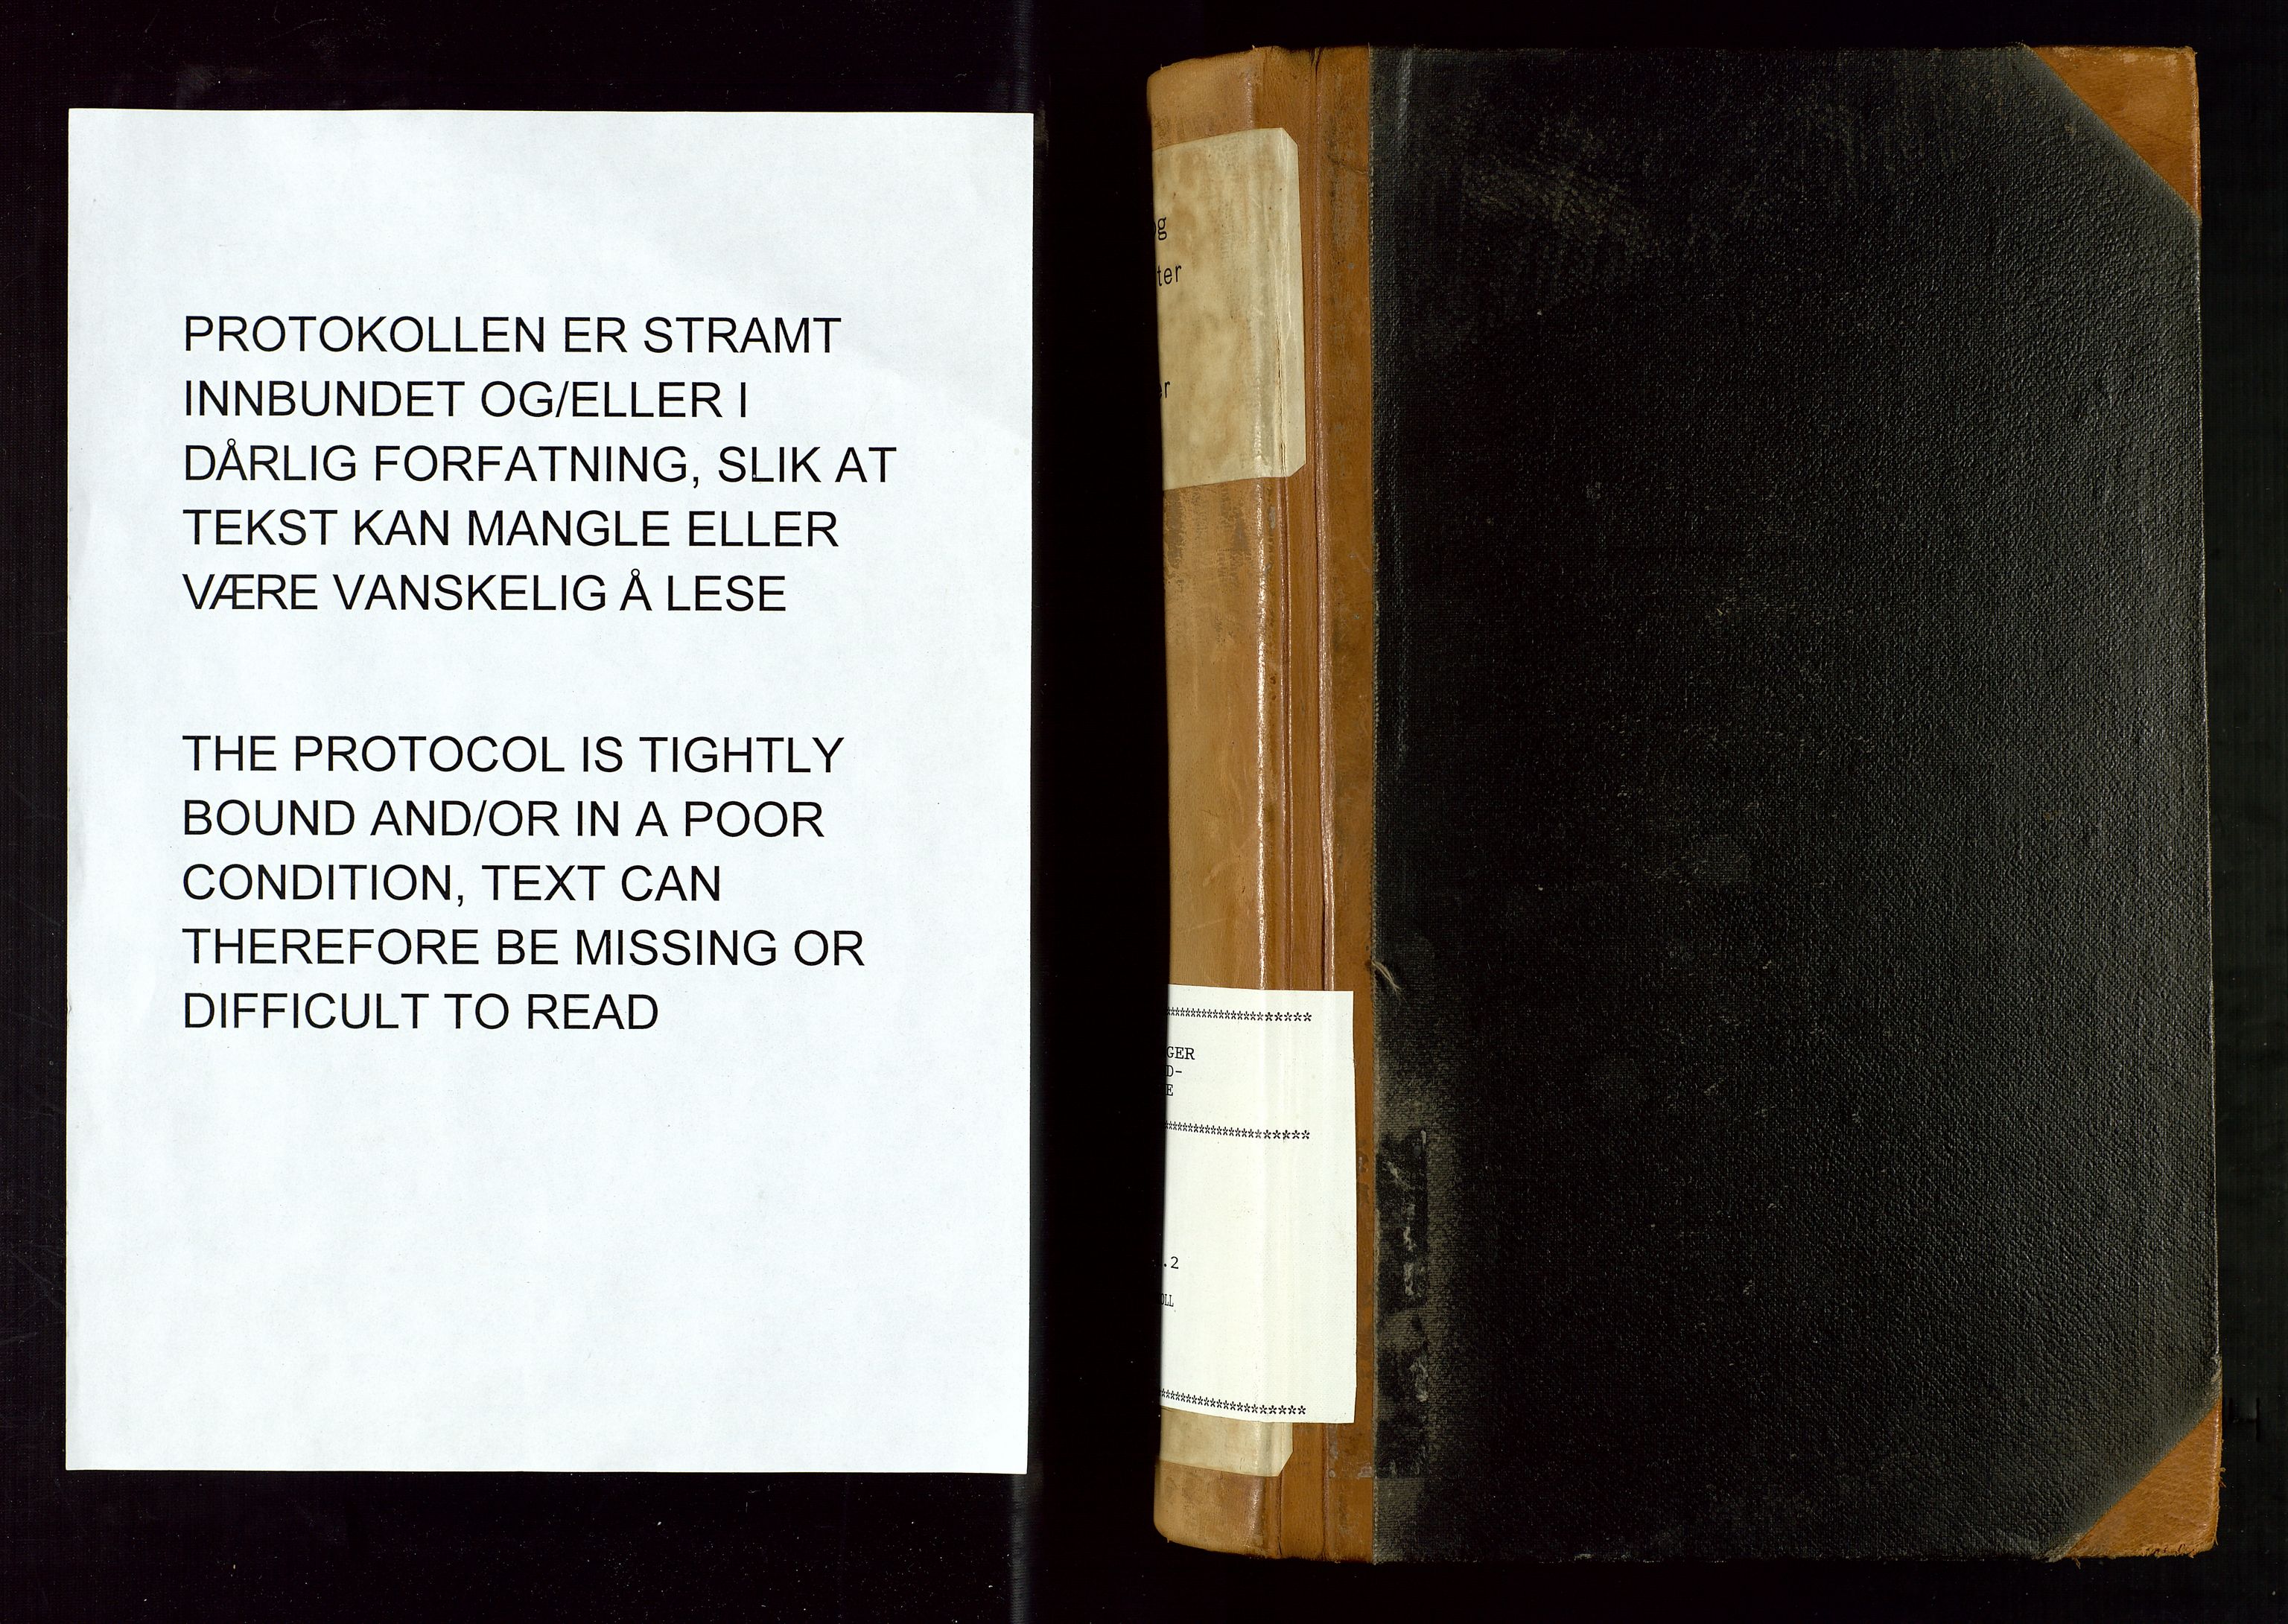 PROTOKOLLEN ER STRAMT
INNBUNDET OG/ELLER I
DÅRLIG FORFATNING, SLIK AT
TEKST KAN MANGLE ELLER
VÆRE VANSKELIG Å LESE
THE PROTOCOL IS TIGHTLY
BOUND AND/OR IN A POOR
CONDITION, TEXT CAN
THEREFORE BE MISSING OR
DIFFICULT TO READ
g
ter
er
GER
D-
E
.2
OLL